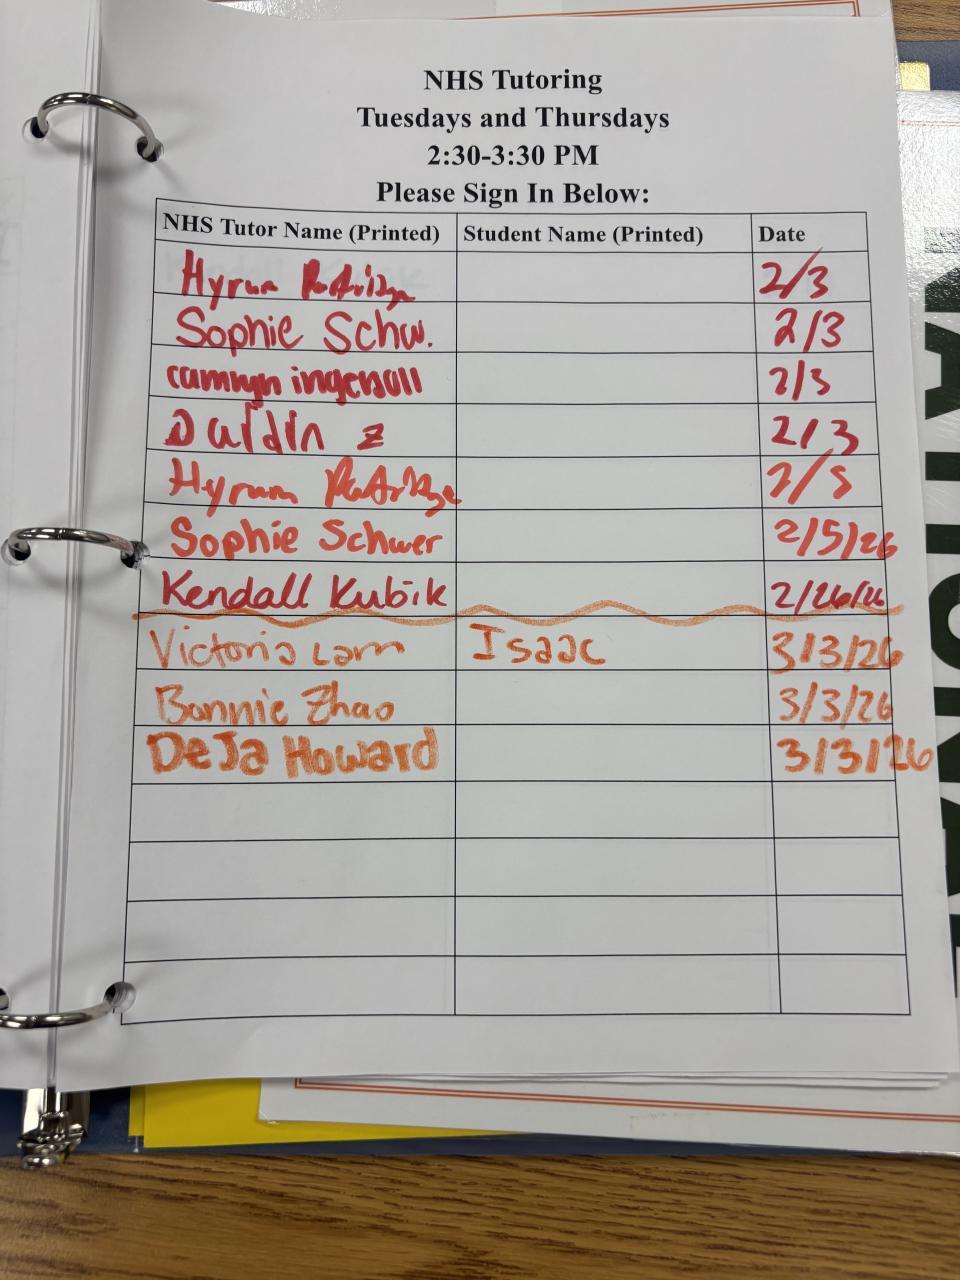 NHS Tutoring
Tuesdays and Thursdays
2:30-3:30 PM
Please Sign In Below:
NHS Tutor Name (Printed) Student Name (Printed) Date
Hyrum Partridge 2/3
Sophie Schw. 2/3
camryn ingersoll 2/3
z 2/3
Hyrum Partridge 2/5
Sophie Schwer 2/5/26
Kendall Kubik 2/26/26
Victoria Lam Isaac 3/3/26
Bonnie Zhao 3/3/26
DeJa Howard 3/3/26